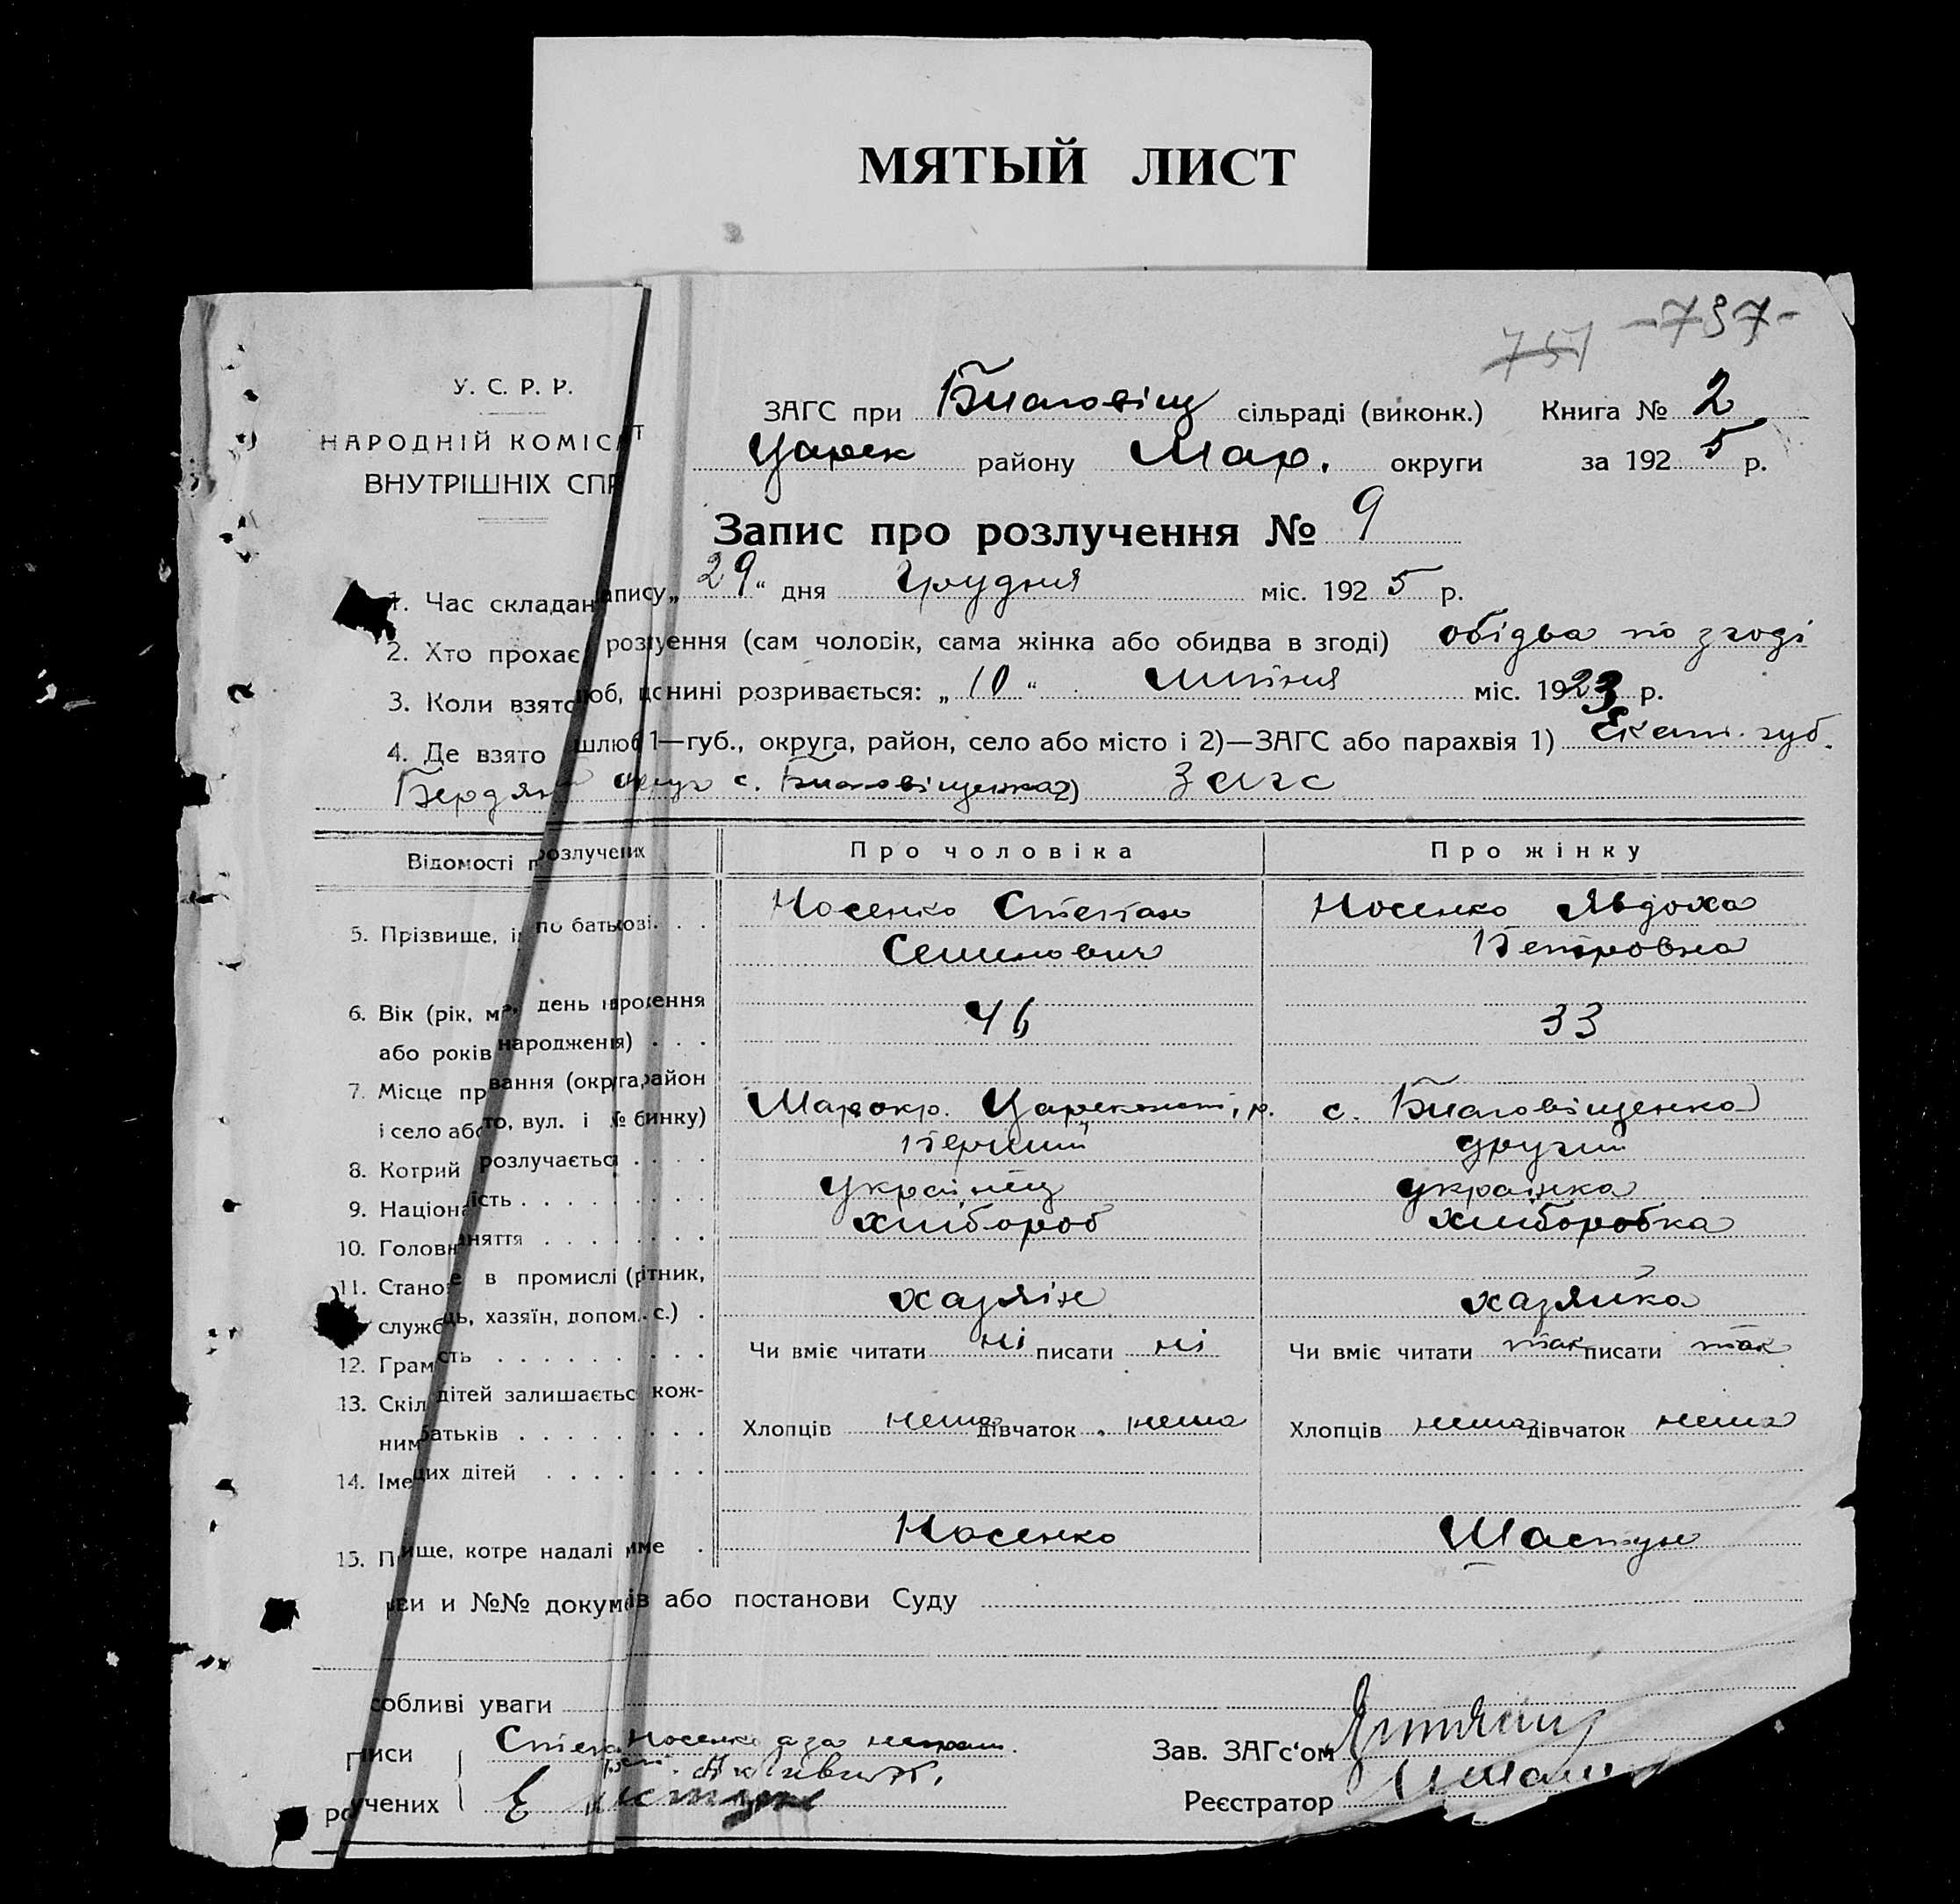 МЯТЫЙ ЛИСТ
757 -797-
У. С. Р. Р.
НАРОДНІЙ КОМІС Т
ВНУТРІШНІХ СПР
ЗАГС при Благовіщ сільраді (виконк.) Книга № 2
Царек району Мар. округи за 1925 р.
Запис про розлучення № 9
1. Час складан апису „29“ дня Грудня міс. 1925 р.
2. Хто прохає розлучення (сам чоловік, сама жінка або обидва в згоді) обідва по згоді
3. Коли взято люб, що нині розривається: „10“ липня міс. 1923 р.
4. Де взято шлюб 1—губ., округа, район, село або місто і 2)—ЗАГС або парахвія 1) Екат. губ.
Бердян округ с. Благовіщенка 2) Загс
Відомості п розлучених Про чоловіка Про жінку
5. Прізвище, і по батькові. Носенко Степан Носенко Явдоха
Семинович Петровна
6. Вік (рік, м день народження 46 33
або років народження)
7. Місце пр вання (округа, район
і село або то, вул. і № будинку) Мар окр. Цареконст. р. с. Благовіщенка
8. Котрий розлучається Перший другий
9. Націона ість Українец українка
10. Головн няття хлибороб хлиборобка
11. Стано е в промислі (р тник,
служб ць, хазяїн, допом. с.) хазяїн хазяйка
12. Грам сть Чи вміє читати ні писати ні Чи вміє читати так писати так
13. Скіл дітей залишаєтьс кож-
ним батьків Хлопців нема дівчаток нема Хлопців нема дівчаток нема
14. Іме цих дітей
15. П ище, котре надалі име Носенко Шастун
ви и №№ докумен ів або постанови Суду
собливі уваги
писи Степа Носенко а за неграм.
ро учених Е
Зав. ЗАГс‘ом
Реєстратор